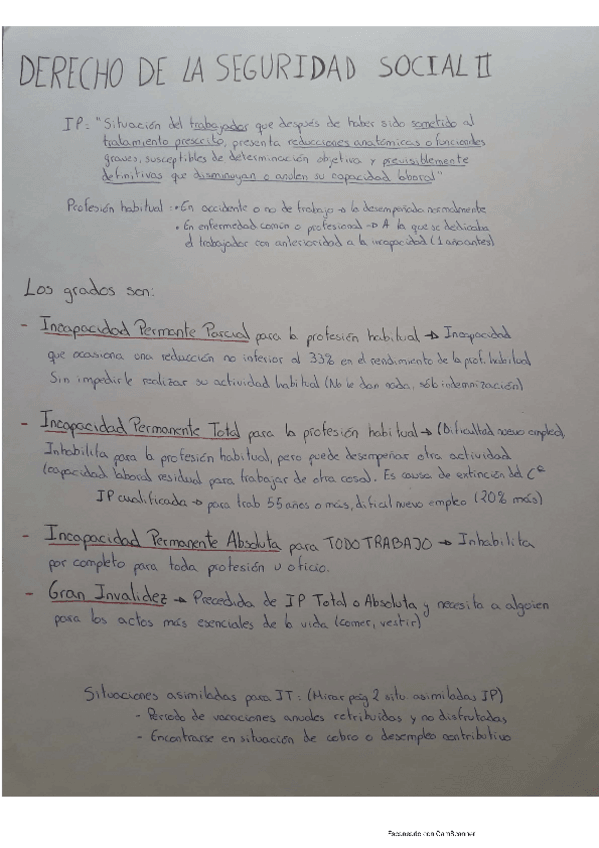 DERECHO DE LA SEGURIDAD SOCIAL II
IP: "Situación del trabajador que después de haber sido sometido al
tratamiento prescrito, presenta reducciones anatómicas o funcionales
graves, susceptibles de determinación objetiva y previsiblemente
definitivas que disminuyan o anulen su capacidad laboral"
Profesión habitual: • En accidente o no de trabajo → la desempeñada normalmente
• En enfermedad común o profesional → A la que se dedicaba
el trabajador con anterioridad a la incapacidad (1 año antes)
Los grados son:
- Incapacidad Permante Parcial para la profesión habitual → Incapacidad
que ocasiona una reducción no inferior al 33% en el rendimiento de la prof. habitual
Sin impedirle realizar su actividad habitual (No le dan nada, sólo indemnización)
- Incapacidad Permanente Total para la profesión habitual → (Dificultad nuevo empleo),
Inhabilita para la profesión habitual, pero puede desempeñar otra actividad
(capacidad laboral residual para trabajar de otra cosa). Es causa de extinción del Cº
IP cualificada → para trab 55 años o más, dificil nuevo empleo (20% más)
- Incapacidad Permanente Absoluta para TODO TRABAJO → Inhabilita
por completo para toda profesión u oficio.
- Gran Invalidez → Precedida de IP Total o Absoluta y necesita a alguien
para los actos más esenciales de la vida (comer, vestir)
Situaciones asimiladas para IT: (Mirar pág 2 situ asimiladas IP)
- Periodo de vacaciones anuales retribuidas y no disfrutadas
- Encontrarse en situación de cobro o desempleo contributivo
Escaneado con CamScanner